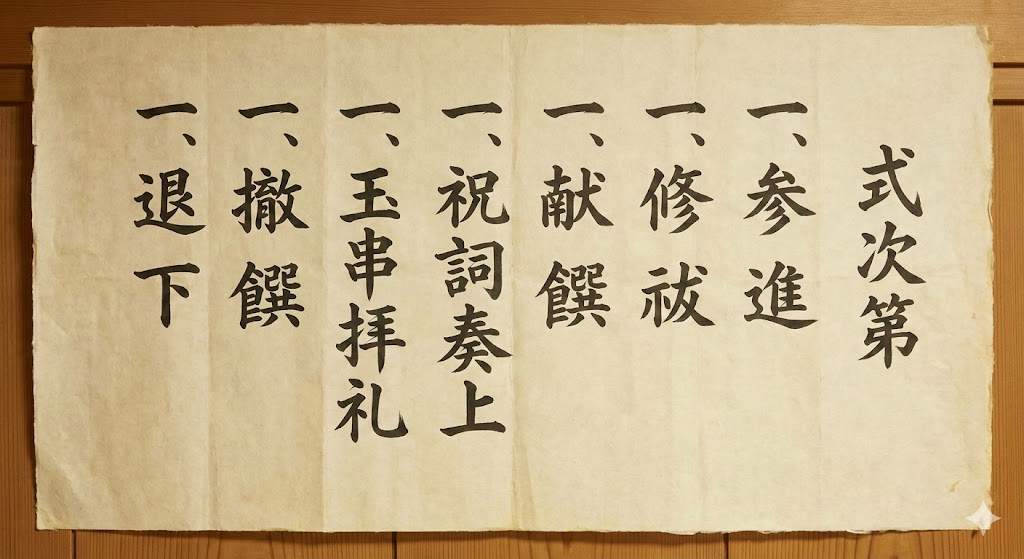 式次第
一、参進
一、修祓
一、献饌
一、祝詞奏上
一、玉串拝礼
一、撤饌
一、退下